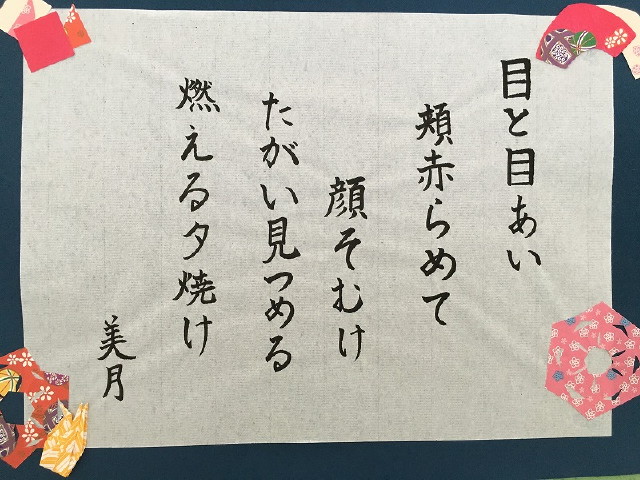 目と目あい
頬赤らめて
顔そむけ
たがい見つめる
燃える夕焼け
美月